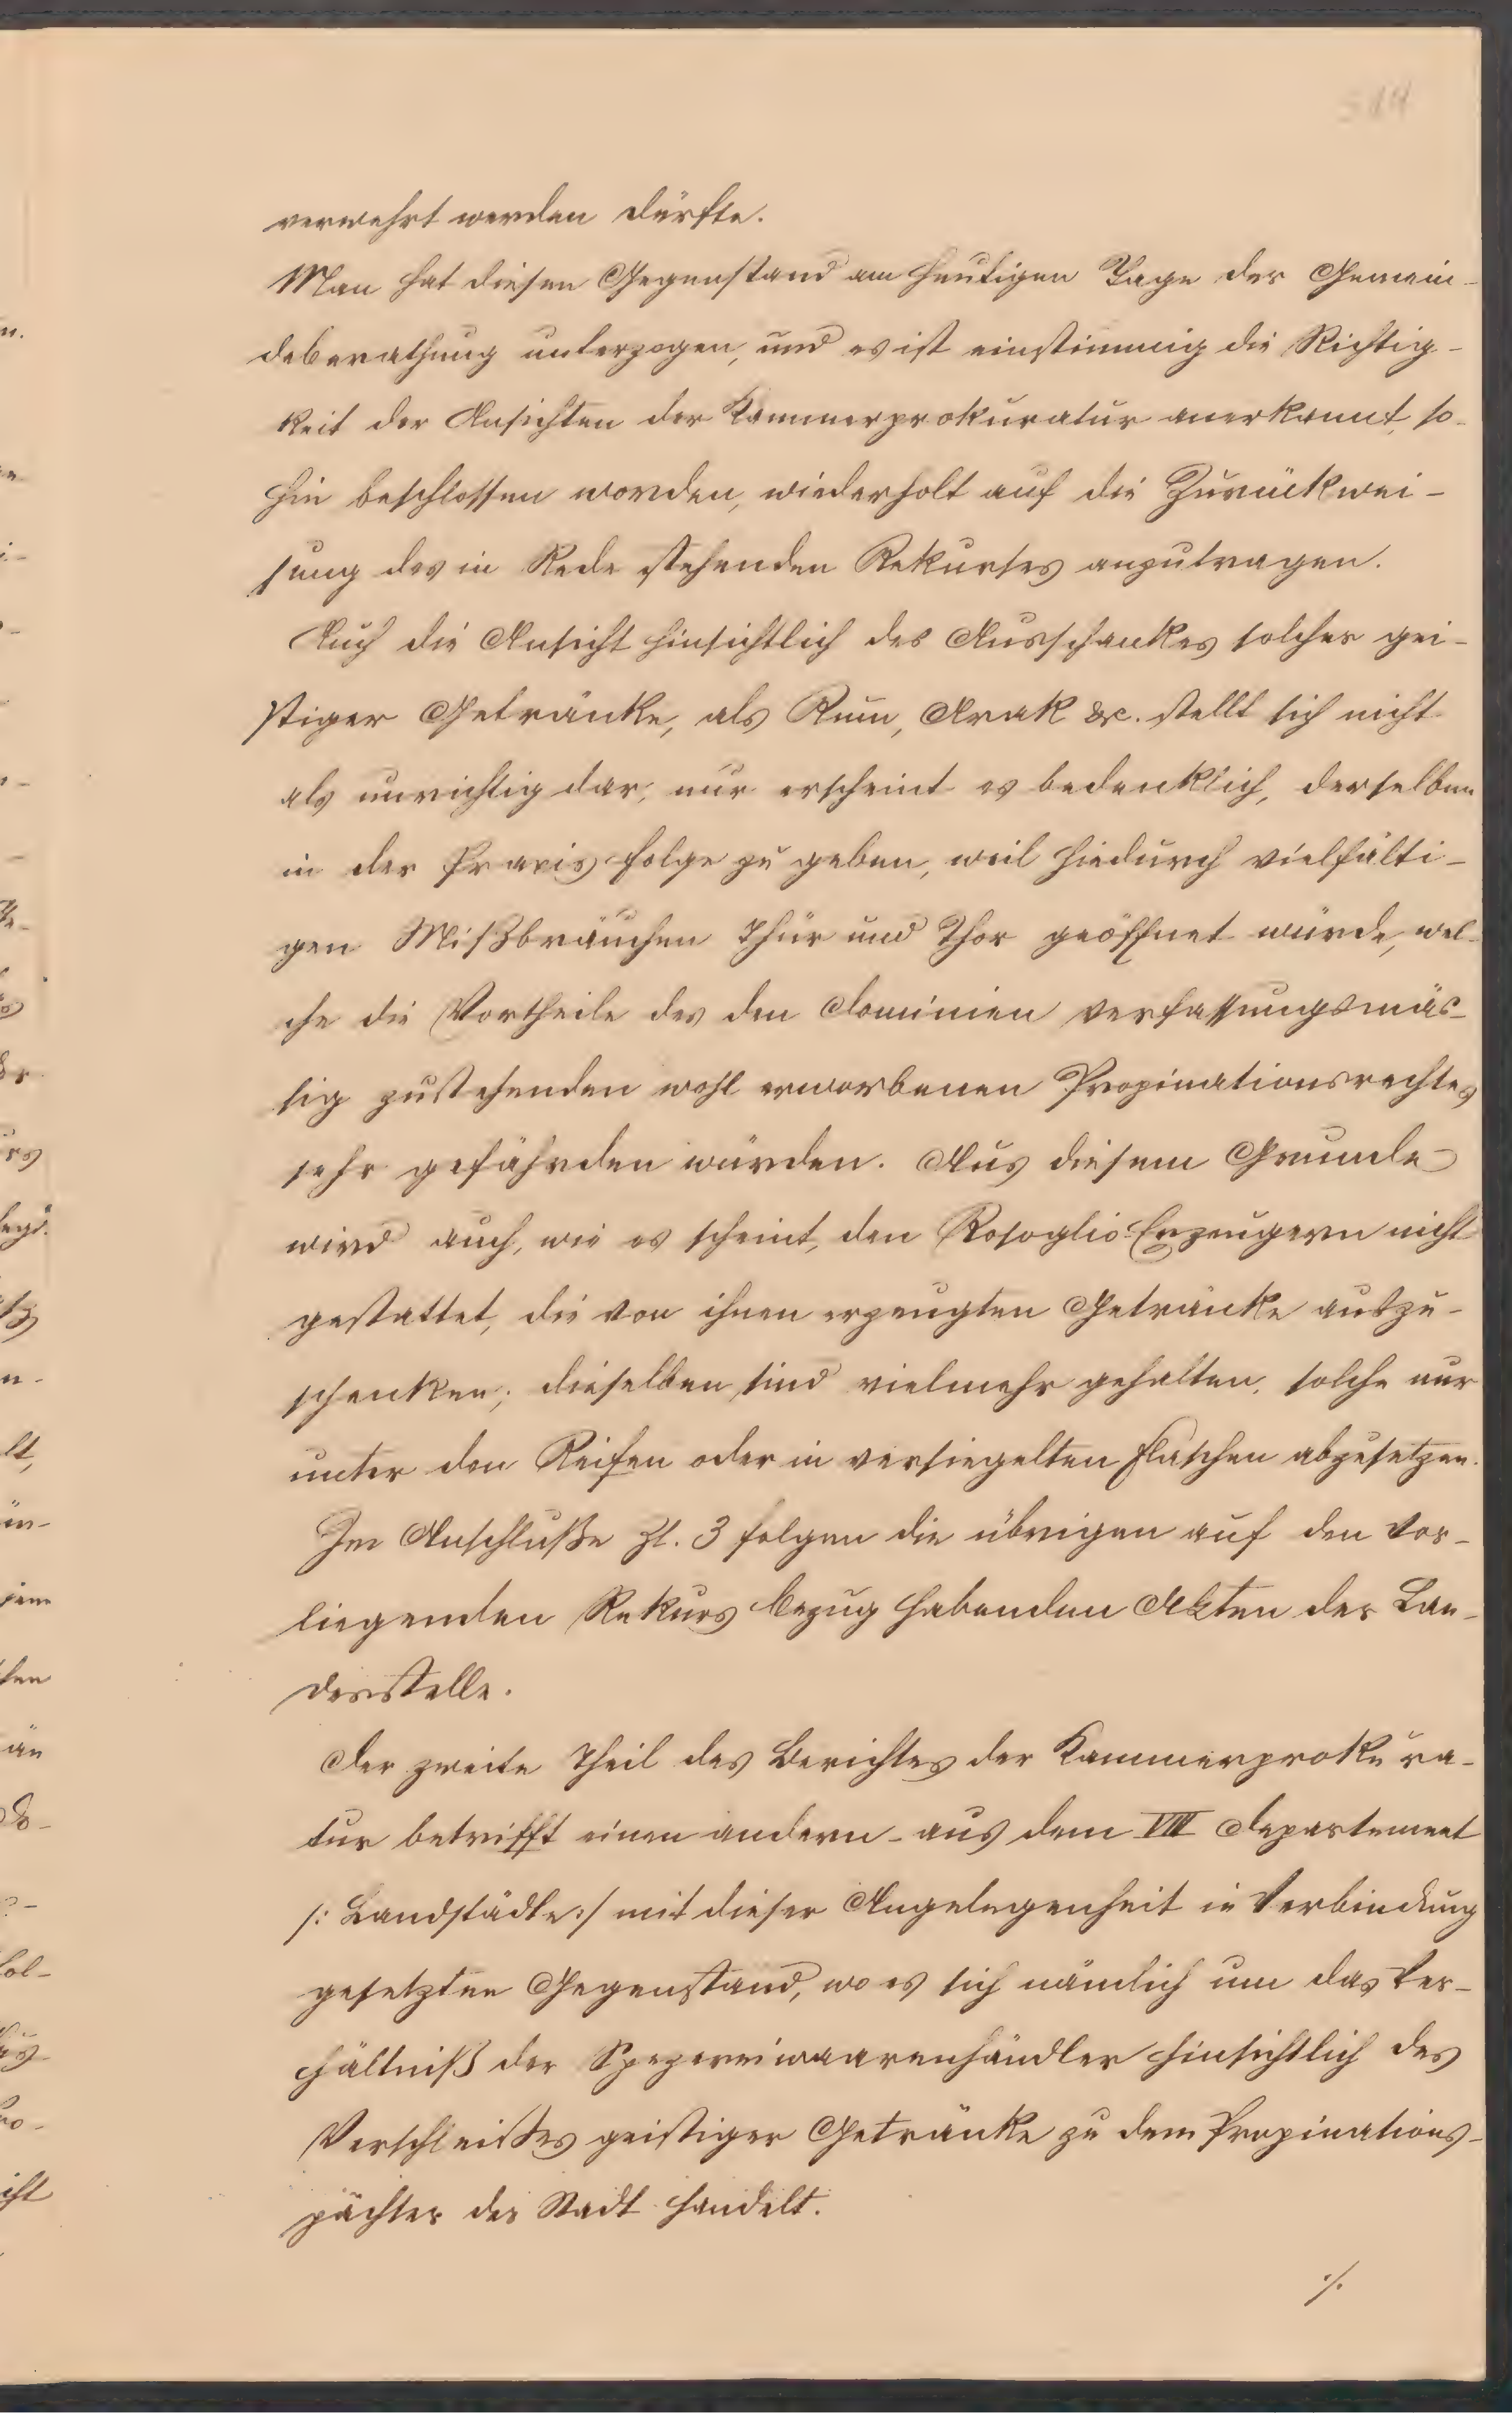 verwehrt werden dürfte.
Man hat diesen Gegenstand am heutigen Tage der Gemein-
deberathung unterzogen, und es ist einstimmig die Richtig-
keit der Ansichten der Kammerprokuratur anerkannt, so-
hin beschlossen worden, wiederholt auf die Zurückwei-
sung des in Rede stehenden Rekurses anzutragen.
Auch die Ansicht hinsichtlich des Ausschankes solcher gei-
stiger Getränke, als Rum, Arak &c. stellt sich nicht
als unrichtig dar; nur erscheint es bedenklich, derselben
in der Praxis Folge zu geben, weil hiedurch vielfälti-
gen Mißbräuchen Thür und Thor geöffnet würde, wel-
che die Vortheile des den Dominien verfassungsmäs-
sig zustehenden wohl erworbenen Propinationsrechtes
sehr gefährden würden. Aus diesem Grunde
wird auch, wie es scheint, den Rosoglio-Erzeugern nicht
gestattet, die von ihnen erzeugten Getränke auszu-
schenken; dieselben sind vielmehr gehalten, solche nur
unter den Reifen oder in versiegelten Flaschen abzusetzen.
Im Anschluße Zl. 3 folgen die übrigen auf den vor-
liegenden Rekurs Bezug habenden Akten der Lan-
desstelle.
Der zweite Theil des Berichtes der Kammerprokura-
tur betrifft einen andern - aus dem VIII Departement
/: Landstädte :/ mit dieser Angelegenheit in Verbindung
gesetzten Gegenstand, wo es sich nämlich um das Ver-
hältniß der Spezereiwaarenhändler hinsichtlich des
Verschleißes geistiger Getränke zu dem Propinations-
pächter der Stadt handelt.
./.